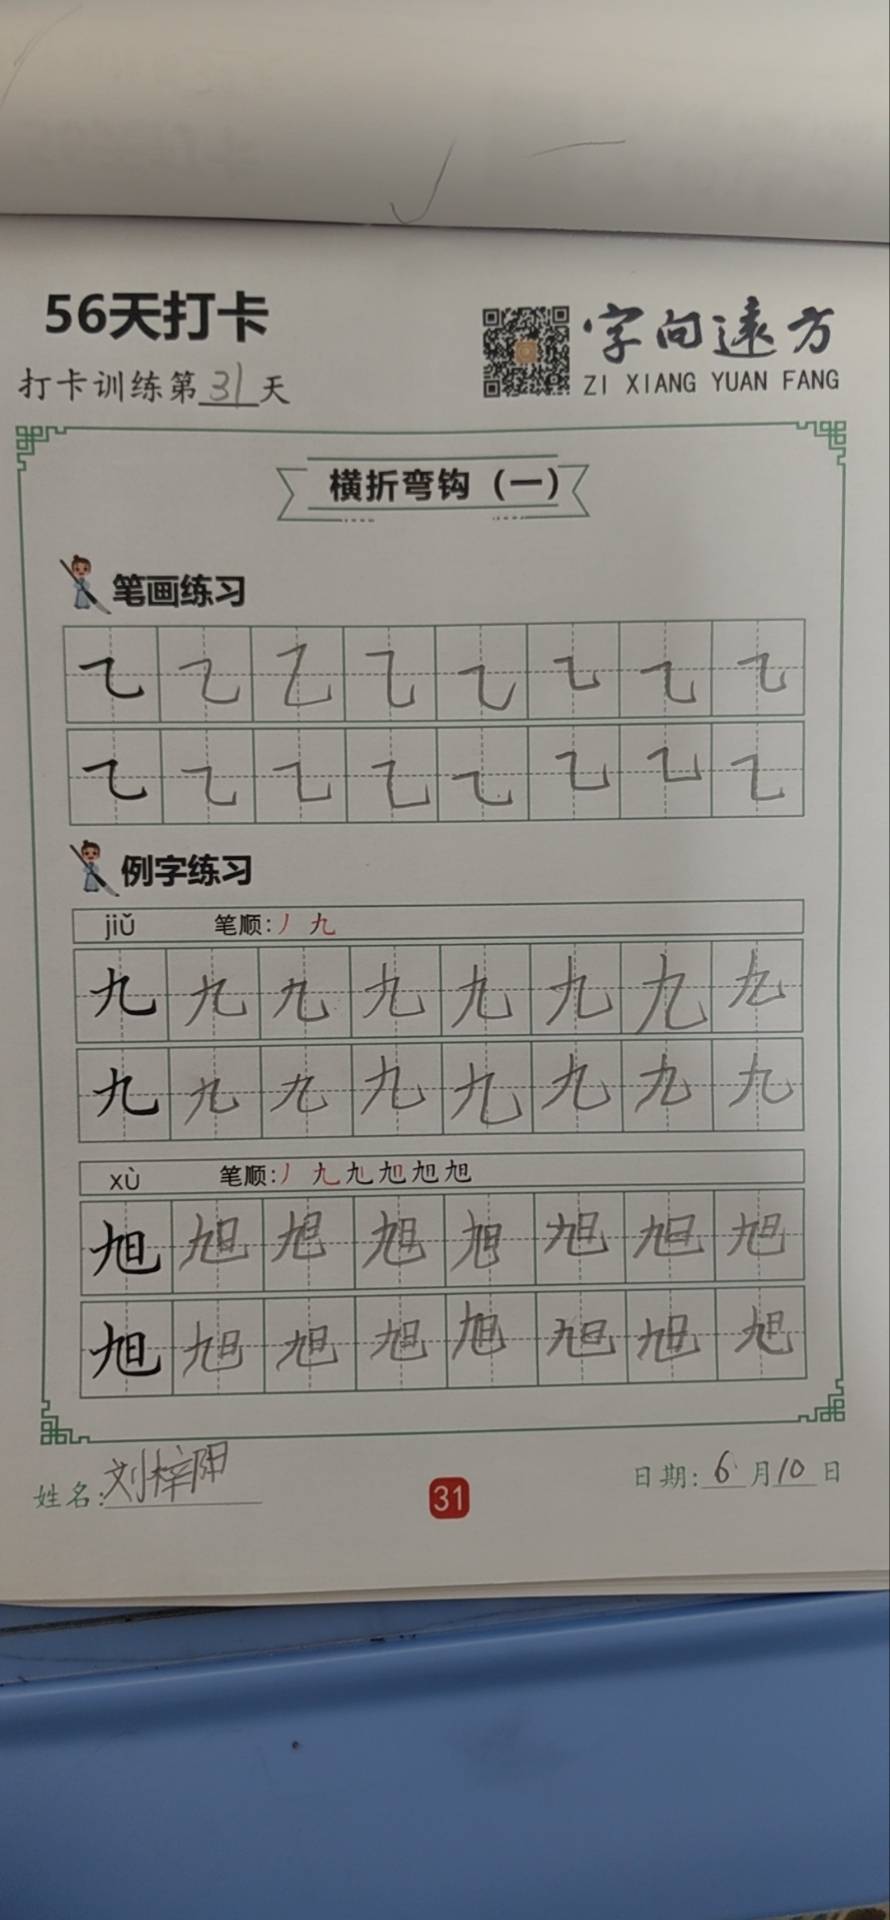 56天打卡
字向远方
打卡训练第31天
ZI XIANG YUAN FANG
横折弯钩（一）
笔画练习
㇈ ㇈ ㇈ ㇈ ㇈ ㇈ ㇈ ㇈
㇈ ㇈ ㇈ ㇈ ㇈ ㇈ ㇈ ㇈
例字练习
jiǔ 笔顺：丿 九
九 九 九 九 九 九 九 九
九 九 九 九 九 九 九 九
xù 笔顺：丿 九 九 旭 旭 旭
旭 旭 旭 旭 旭 旭 旭 旭
旭 旭 旭 旭 旭 旭 旭 旭
姓名：刘梓阳
31
日期：6月10日